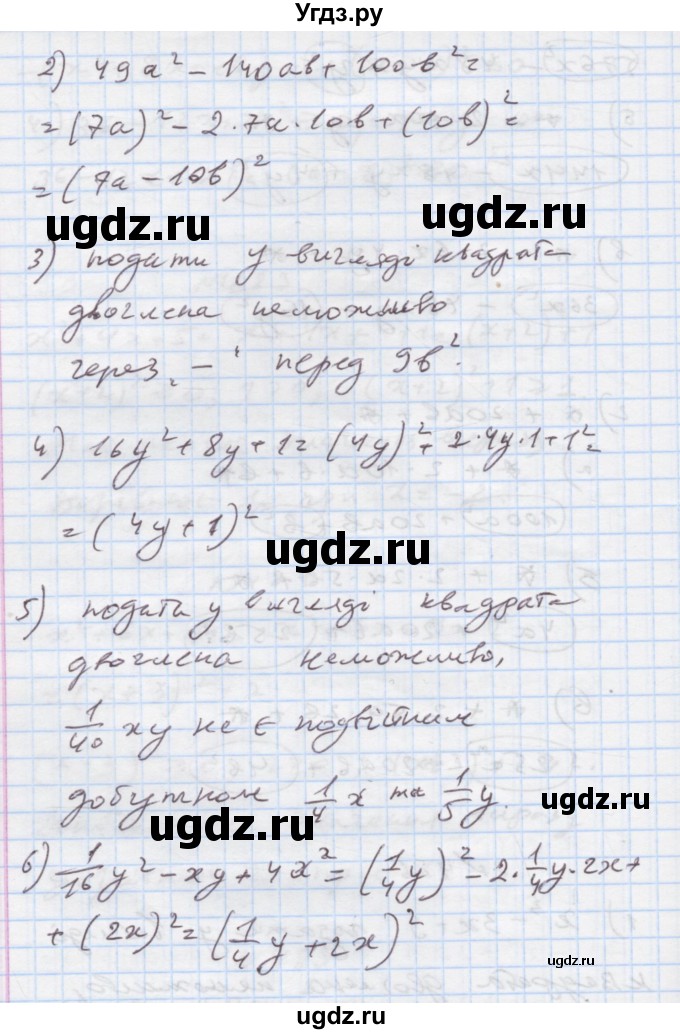 Угдз.ру
2) 49a² - 140ab + 100b² =
= (7a)² - 2·7a·10b + (10b)² =
= (7a - 10b)²
ugdz.ru
ugdz.ru
3) подати у вигляді квадрата
двочлена неможливо
через „-“ перед 9b².
ugdz.ru
4) 16y² + 8y + 1 = (4y)² + 2·4y·1 + 1² =
= (4y + 1)²
ugdz.ru
5) подати у вигляді квадрата
двочлена неможливо,
1/40 xy не є подвітним
добутком 1/4 x та 1/5 y.
ugdz.ru
ugdz.ru
6) 1/16 y² - xy + 4x² = (1/4 y)² - 2·1/4 y·2x +
+ (2x)² = (1/4 y + 2x)²
ugdz.ru
ugdz.ru